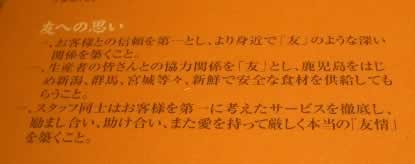 友への思い
一、お客様との信頼を第一とし、より身近で「友」のような深い
関係を築くこと。
一、生産者の皆さんとの協力関係を「友」とし、鹿児島をはじ
め新潟、群馬、宮城等々、新鮮で安全な食材を供給しても
らうこと。
一、スタッフ同士はお客様を第一に考えたサービスを徹底し、
励まし合い、助け合い、また愛を持って厳しく本当の「友情」
を築くこと。